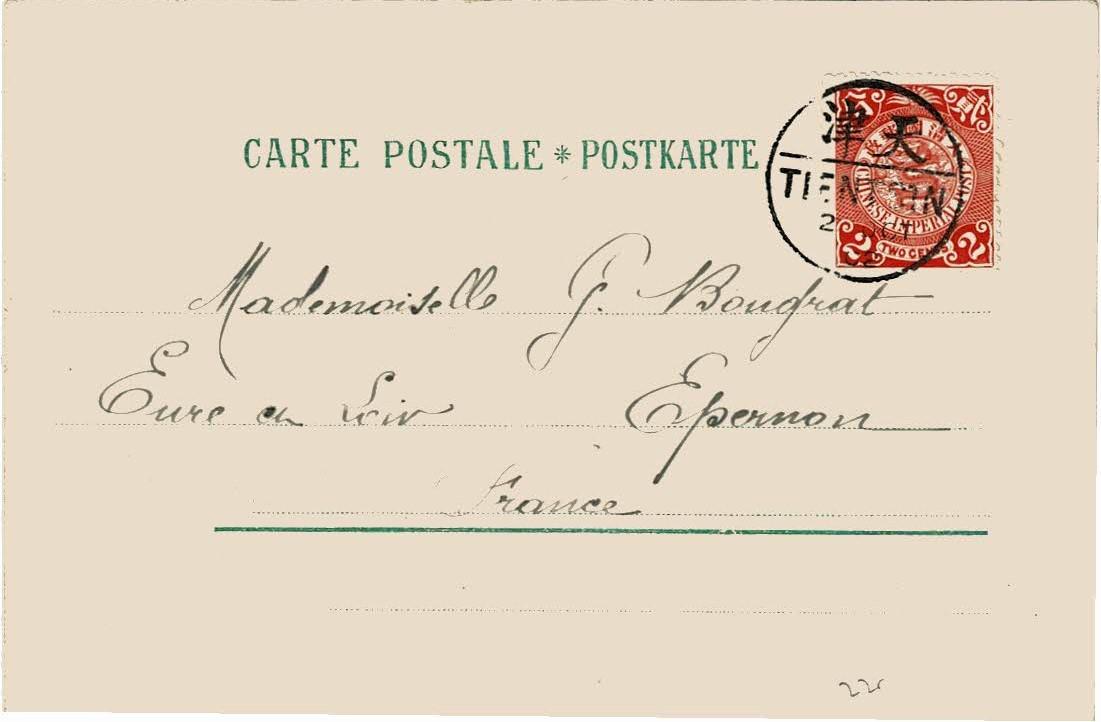 CARTE POSTALE * POSTKARTE
津天
TIENTSIN
2 OCT
02
CHINESE IMPERIAL POST
2 TWO CENTS 2
Mademoiselle G. Bougrat
Eure en Loir Epernon
France